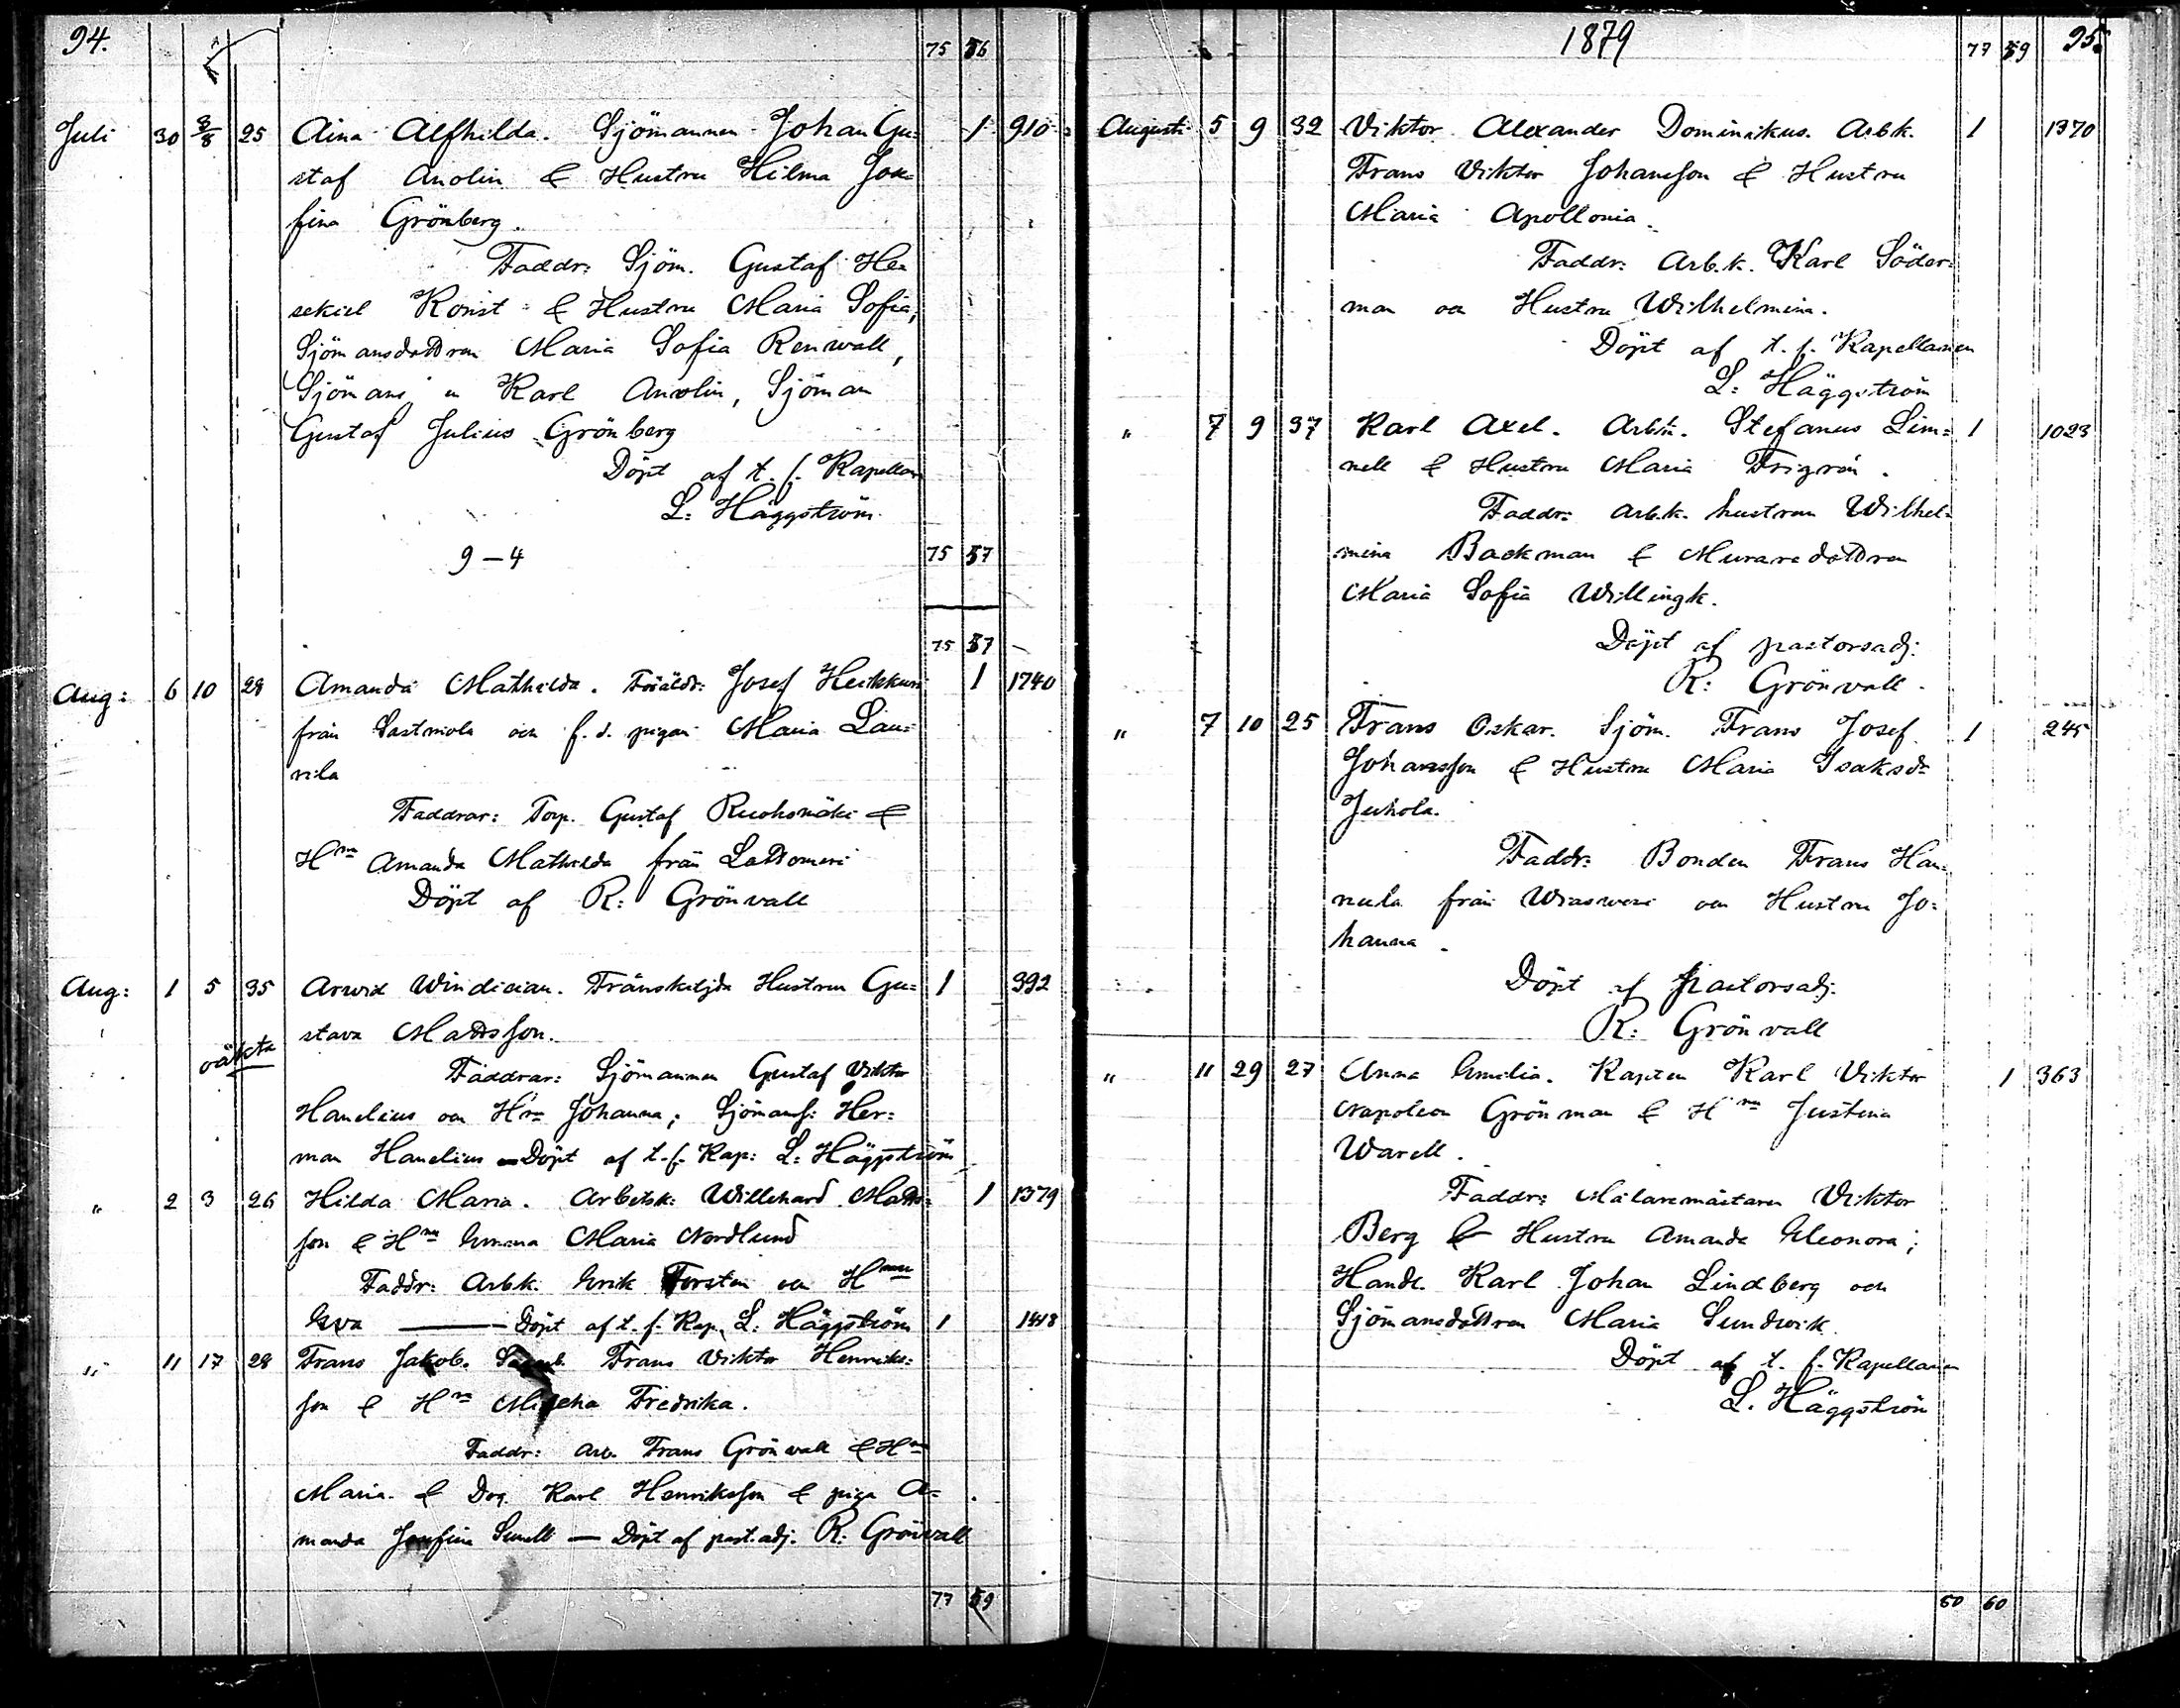 94.
75 56
Juli 30 3/8 25 Aina Alfhilda. Sjömannen Johan Gu= 1 910
staf Anolin & Hustru Hilma Jose=
fina Grönberg.
Faddr: Sjöm. Gustaf He=
sekiel Konst & Hustru Maria Sofia,
Sjömansdottren Maria Sofia Renwall,
Sjömans Karl Anolin, Sjöman
Gustaf Julius Grönberg
Döpt af t. f. Kapellan
L: Häggström
9–4 75 57
75 57
Aug: 6 10 28 Amanda Mathilda. Föräldr: Josef Heikkuri 1 1740
från Sastmola och f. d. pigan Maria Lau=
rila
Faddrar: Torp. Gustaf Ruohomäki &
Hru Amanda Mathilda från Lattomeri
Döpt af R: Grönvall
Aug: 1 5 35 Arwid Windician. Frånskiljda Hustrun Gu= 1 392
stava Mattsson.
oäkta
Faddrar: Sjömannen Gustaf Viktor
Hanelius och Hru Johanna; Sjömansf: Her=
man Hanelius – Döpt af t. f. Kap: L: Häggström
" 2 3 26 Hilda Maria. Arbetsk: Willehard Matts= 1 1379
son & Hru Emma Maria Nordlund
Faddr: Arbk. Erik Forsten och Hru
Eva — Döpt af t. f. Kap. L: Häggström 1 1418
" 11 17 28 Frans Jakob. Frans Viktor Henriks=
son & Hru Fredrika.
Faddr: Arb. Frans Grönvall & Hru
Maria & Drg. Karl Henriksson & piga A=
manda Josefina Sunell — Döpt af past. adj. R: Grönvall
77 59
1879
77 59 95.
Augusti 5 9 32 Viktor Alexander Dominikus. Arbk. 1 1370
Frans Viktor Johansson & Hustru
Maria Apollonia.
Faddr: Arb.k. Karl Söder=
man och Hustru Wilhelmina.
Döpt af t. f. Kapellanen
L: Häggström
" 7 9 37 Karl Axel. Arbk. Stefanus Lin= 1 1023
nell & Hustru Maria Frigrén.
Faddr: Arb.k. hustrun Wilhel=
mina Backman & Muraredottren
Maria Sofia Willingk.
Döpt af pastorsadj:
R: Grönvall.
" 7 10 25 Frans Oskar. Sjöm. Frans Josef 1 245
Johansson & Hustru Maria Isaksdr
Juhola.
Faddr: Bonden Frans Han=
nula från och Hustru Jo=
hanna.
Döpt af pastorsadj.
R: Grönvall
" 11 29 27 Anna Emilia. Kapten Karl Viktor 1 363
Napoleon Grönman & Hru Justina
Warell.
Faddr: Målaremästaren Viktor
Berg & Hustru Amanda Eleonora;
Handl. Karl Johan Lindberg och
Sjömansdottren Maria Sundwik
Döpt af t. f. Kapellanen
L. Häggström
60